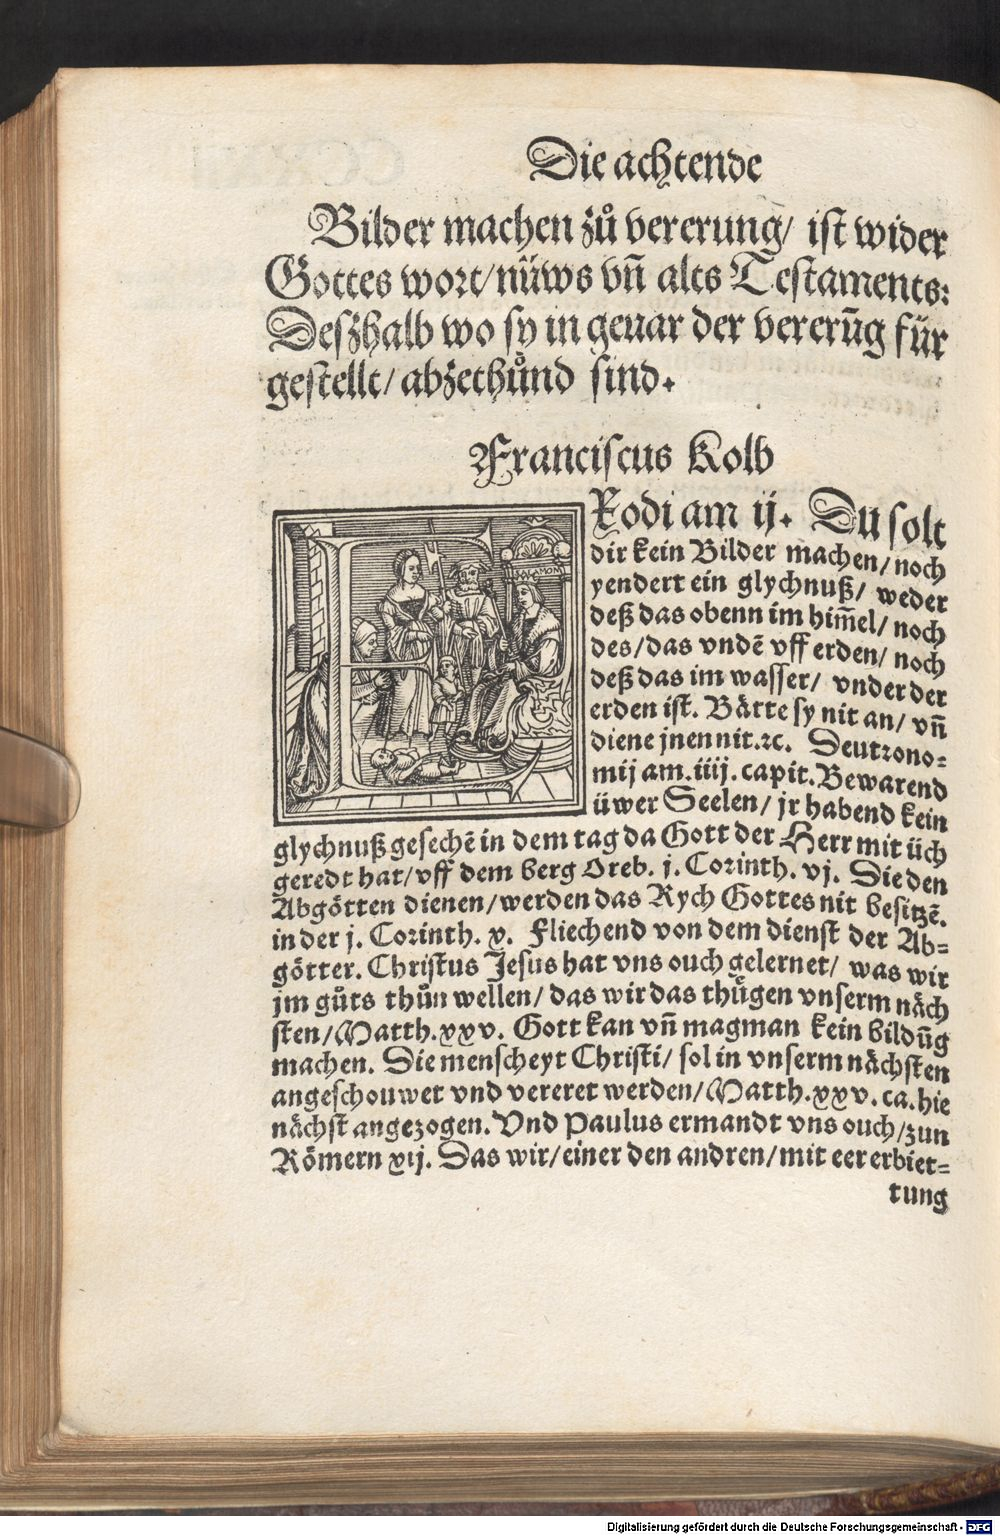 Die achtende
Bilder machen zů vererung/ ist wider
Gottes wort/ nüws vn̄ alts Testaments:
Deszhalb wo sy in geuar der vererūg für
gestellt/ abzethůnd sind.
Franciscus Kolb
EXodi am ij. Du solt
dir kein Bilder machen/ noch
yendert ein glychnuß/ weder
deß das obenn im him̄el/ noch
des/ das vndē vff erden/ noch
deß das im wasser/ vnder der
erden ist. Bätte sy nit an/ vn̄
diene jnen nit. ꝛc. Deutrono⸗
mij am. iiij. capit. Bewarend
üwer Seelen/ jr habend kein
SALAMON
glychnuß gesechē in dem tag da Gott der Herr mit üch
geredt hat/ vff dem berg Oreb. j. Corinth. vj. Die den
Abgötten dienen/ werden das Rych Gottes nit besitzē.
in der j. Corinth. x. Fliechend von dem dienst der Ab⸗
götter. Christus Jesus hat vns ouch gelernet/ was wir
jm gůts thůn wellen/ das wir das thůgen vnserm näch
sten/ Matth. xxv. Gott kan vn̄ mag man kein bildūg
machen. Die menscheyt Christi/ sol in vnserm nächsten
angeschouwet vnd vereret werden/ Matth. xxv. ca. hie
nächst angezogen. Vnd Paulus ermandt vns ouch/ zun
Römern xij. Das wir/ einer den andren/ mit eer erbiet⸗
tung
Digitalisierung gefördert durch die Deutsche Forschungsgemeinschaft - DFG